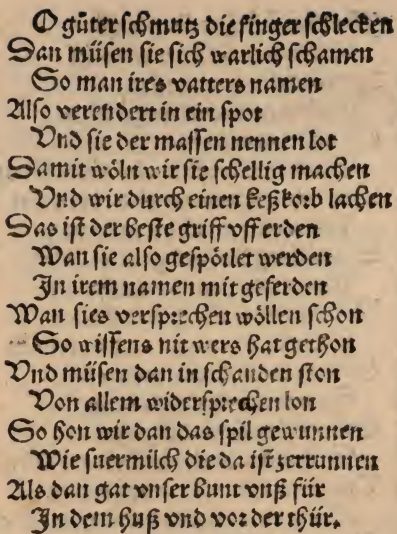 O gůter schmutz die finger schlecken
Dan müsen sie sich warlich schamen
So man ires vatters namen
Also verendert in ein spot
Vnd sie der massen nennen lot
Damit wöln wir sie schellig machen
Vnd wir durch einen keßkorb lachen
Das ist der beste griff vff erden
Wan sie also gespötlet werden
In irem namen mit geferden
Wan sies versprechen wöllen schon
So wissens nit wers hat gethon
Vnd müsen dan in schanden ston
Von allem widersprechen lon
So hon wir dan das spil gewunnen
Wie suermilch die da ist zerrunnen
Als dan gat vnser bunt vnß für
In dem huß vnd vor der thür.